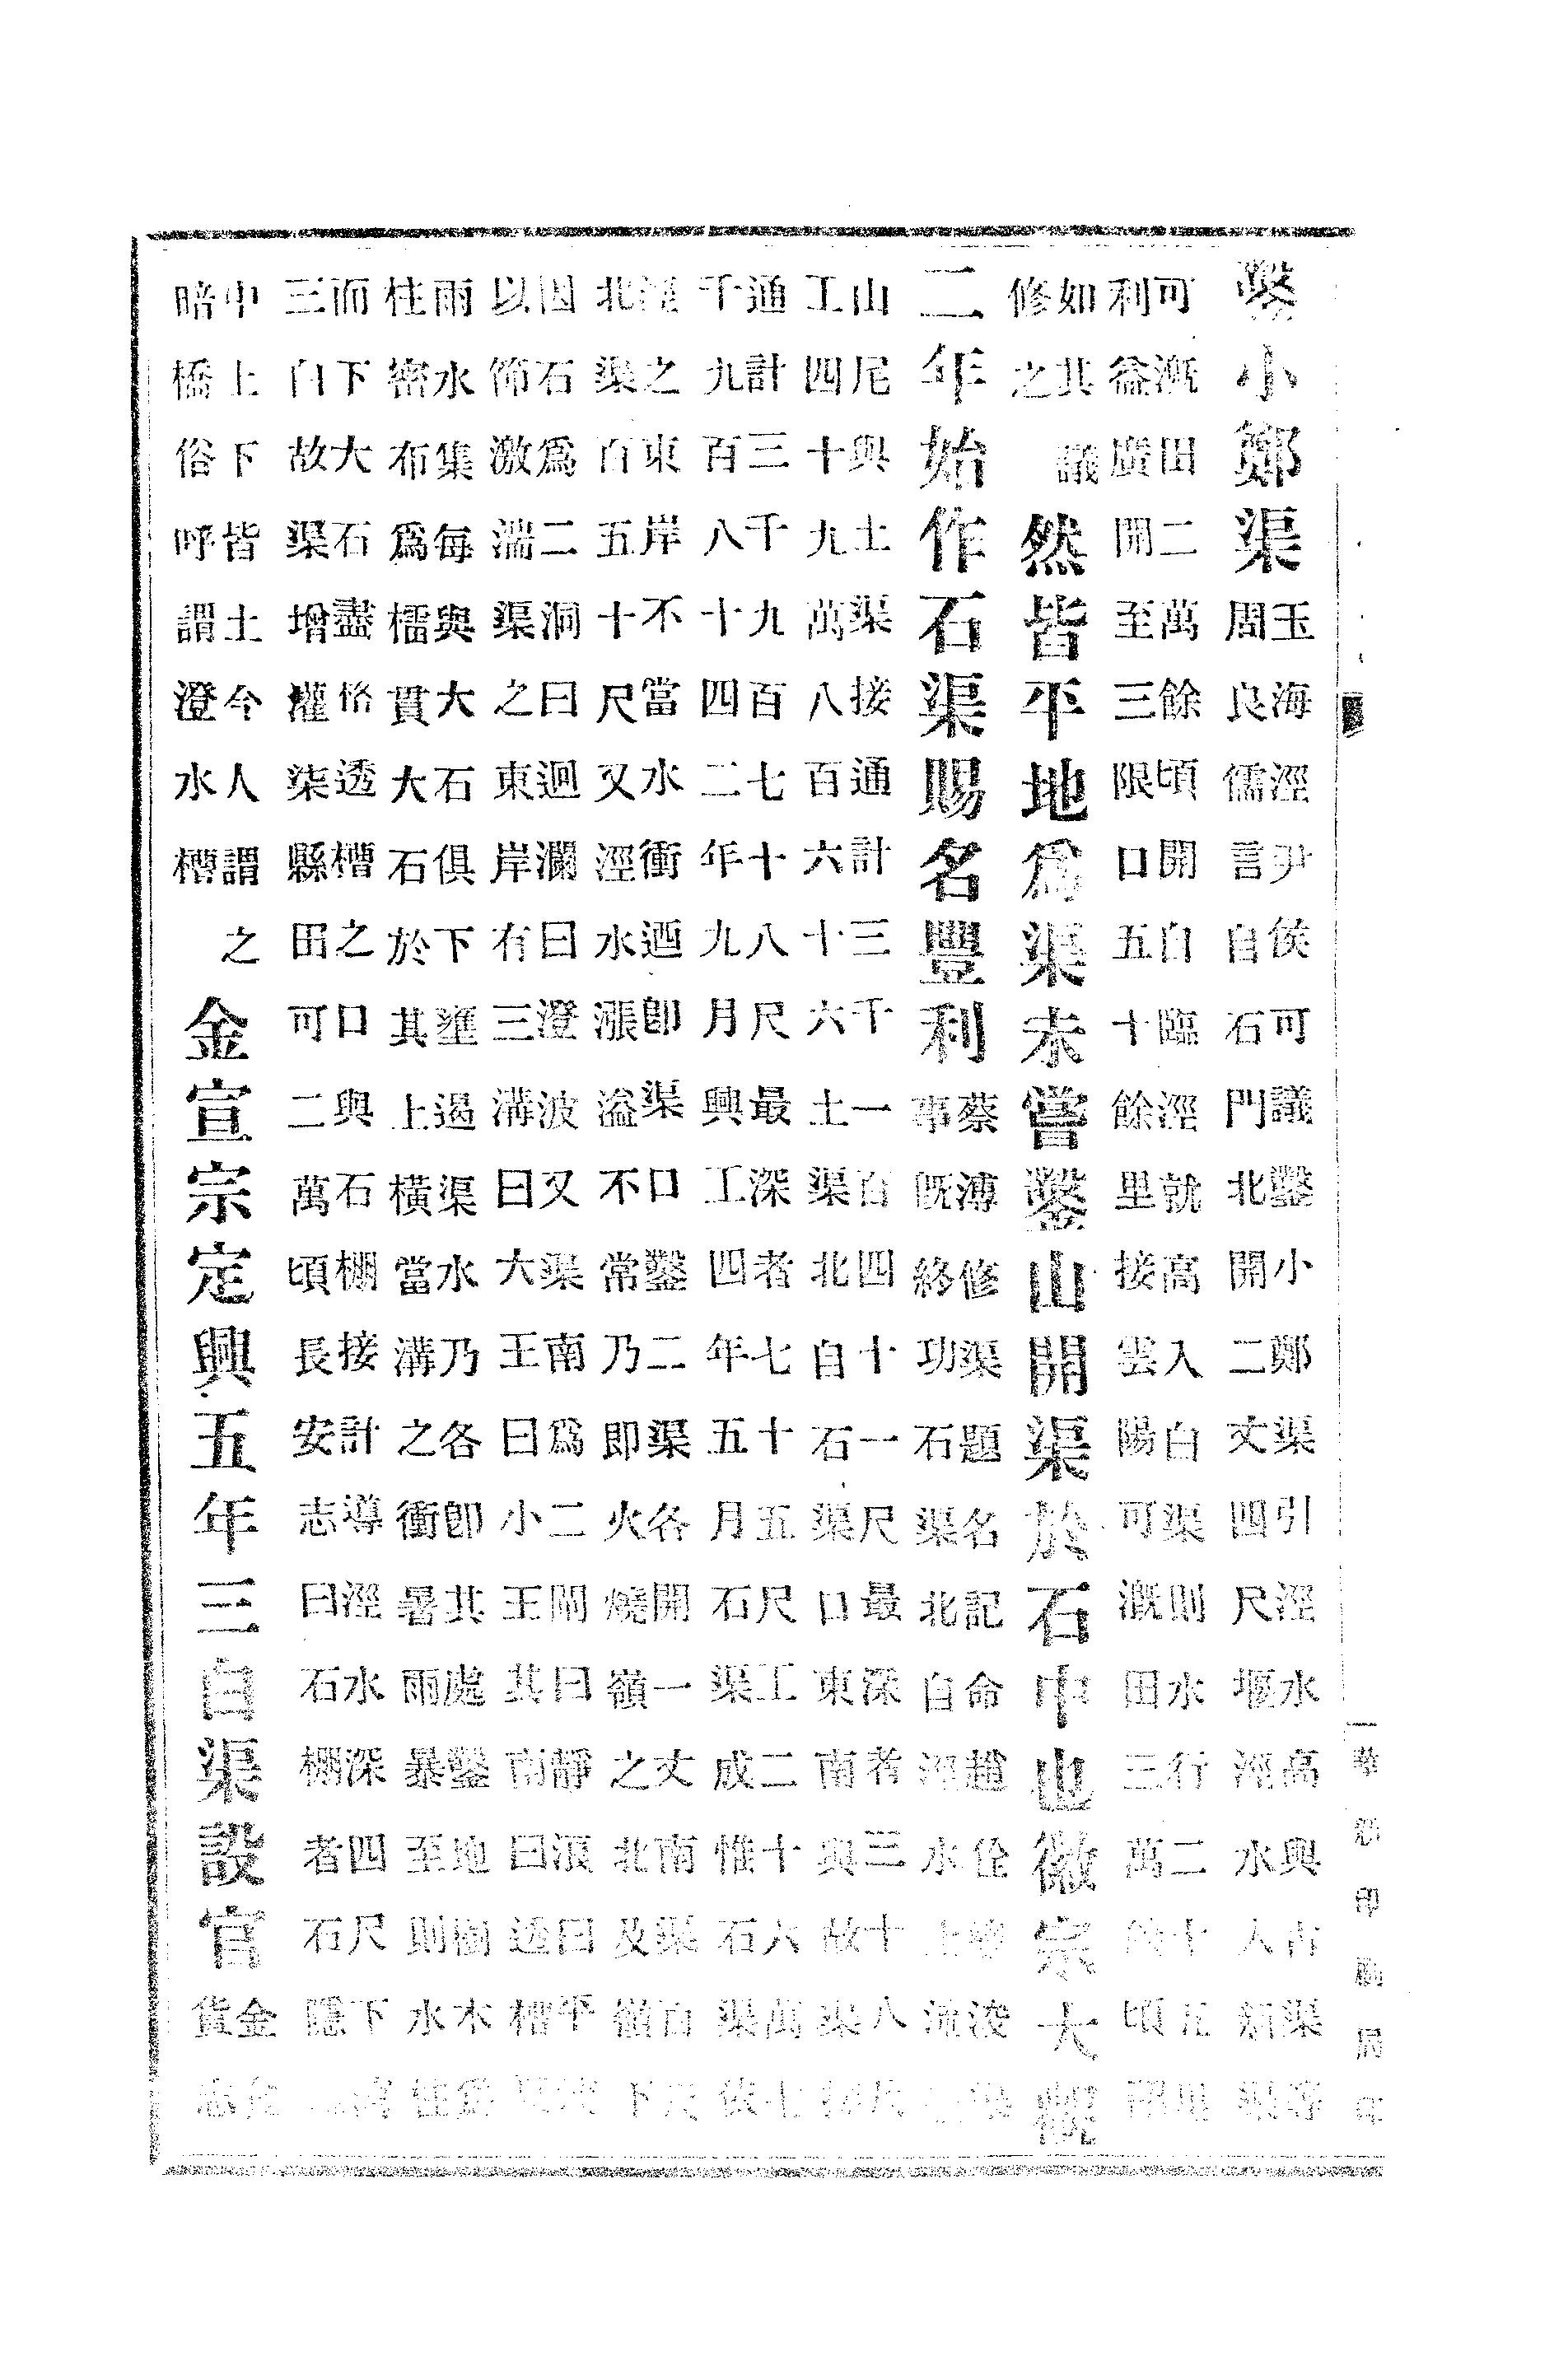 鑿小鄭渠
玉海涇尹侯可議鑿小鄭渠引涇水高與古渠等
周良儒言自石門北開二丈四尺堰涇水入新渠
可漑田二萬餘頃開白臨涇就高入白渠則水行二十五里
利益廣開至三限口五十餘里接雲陽可漑田三萬餘頃
如其議
修之
然皆平地爲渠未嘗鑿山開渠於石中也徽宗大觀
二年始作石渠賜名豐利
蔡溥修渠題名記命趙佺
事既終功石渠北自涇水上流
山尾與土渠接通計三千一百四十一尺最深者三十八尺
工四十九萬八百六十六土渠北自石渠口東南與故渠接
通計三千九百七十八尺最深者七十五尺工二十六萬七
千九百八十四二年九月興工四年五月石渠成惟石渠依
涇之東岸不當水衝迺卽渠口鑿二渠各開一丈南渠百尺
北渠百五十尺又涇水漲溢不常乃即火燒嶺之北及嶺下
因石爲二洞曰迴瀾曰澄波又渠南爲二閘曰靜浪曰平流
以節激湍渠之東岸有三溝曰大王曰小王其南曰透槽夏
雨水集每與大石俱下壅遏渠水乃各卽其處鑿地樹木爲
柱密布爲櫺貫大石於其上橫當溝之衝暑雨暴至則水
而下大石盡格透槽之口與石棚接計導涇水深四尺下
三白故渠增灌柒縣田可二萬頃長安志曰石棚者石隱
中上下皆土今人謂之
暗橋俗呼謂澄水槽
金宣宗定興五年三白渠設官
金食
貨志